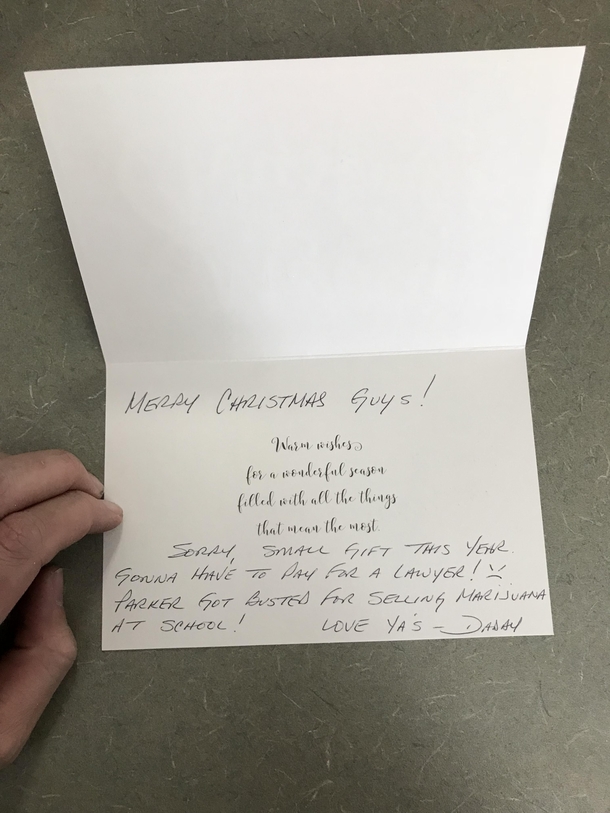 MERRY CHRISTMAS GUYS!
Warm wishes
for a wonderful season
filled with all the things
that mean the most.
SORRY, SMALL GIFT THIS YEAR.
GONNA HAVE TO PAY FOR A LAWYER!
PARKER GOT BUSTED FOR SELLING MARIJUANA
AT SCHOOL! LOVE YA'S - DADDY